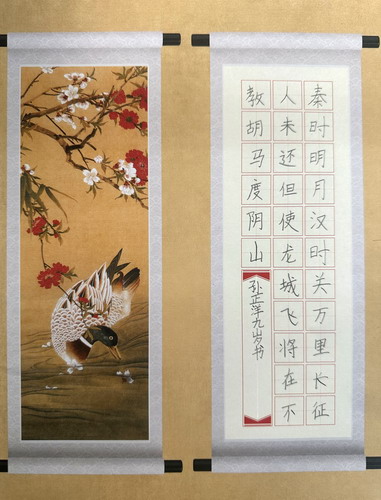 秦时明月汉时关万里长征
人未还但使龙城飞将在不
教胡马度阴山
孙正洋九岁书